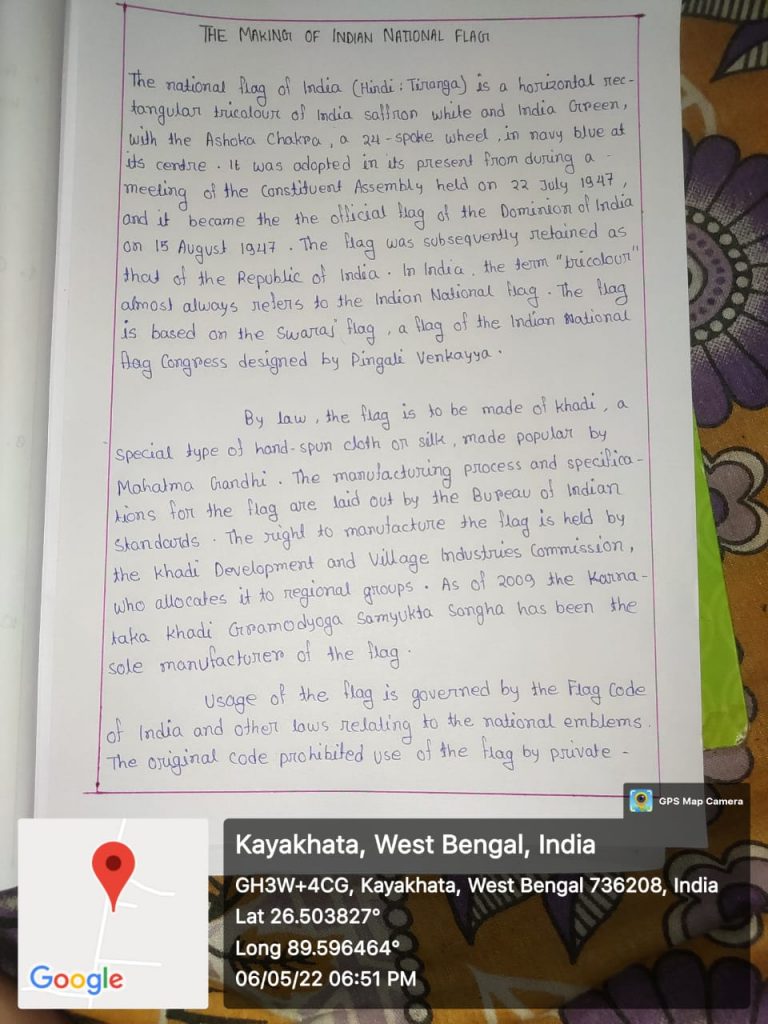 THE MAKING OF INDIAN NATIONAL FLAG
The national flag of India (Hindi : Tiranga) is a horizontal rec-
tangular tricolour of India saffron white and India Green,
with the Ashoka Chakra, a 24-spoke wheel, in navy blue at
its centre. It was adopted in its present from during a
meeting of the Constituent Assembly held on 22 July 1947,
and it became the the official flag of the Dominion of India
on 15 August 1947. The flag was subsequently retained as
that of the Republic of India. In India, the term "tricolour"
almost always refers to the Indian National flag. The flag
is based on the Swaraj flag, a flag of the Indian National
flag Congress designed by Pingali Venkayya.
By law, the flag is to be made of khadi, a
special type of hand-spun cloth or silk, made popular by
Mahatma Gandhi. The manufacturing process and specifica-
tions for the flag are laid out by the Bureau of Indian
Standards. The right to manufacture the flag is held by
the khadi Development and Village Industries Commission,
who allocates it to regional groups. As of 2009 the Karna-
taka khadi Gramodyoga Samyukta Sangha has been the
sole manufacturer of the flag.
Usage of the flag is governed by the Flag Code
of India and other laws relating to the national emblems.
The original code prohibited use of the flag by private -
GPS Map Camera
Kayakhata, West Bengal, India
GH3W+4CG, Kayakhata, West Bengal 736208, India
Lat 26.503827°
Long 89.596464°
06/05/22 06:51 PM
Google